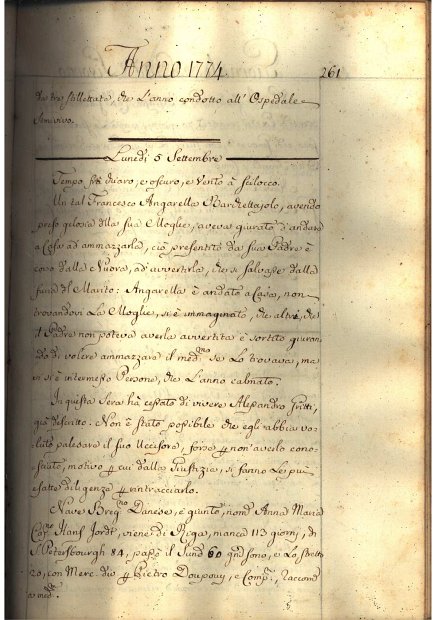 Anno 1774
261
da tre stillettate, che l'anno condotto all'Ospedale
Semivivo.
Lunedì 5 Settembre
Tempo frà chiaro, e oscuro, e Vento à Scilocco.
Un tal Francesco Angarella Barchettajolo, avendo
preso gelosia della sua Moglie, aveva giurato d'andare
a Casa ad ammazzarla, ciò presentito da suo Padre è
corso dalla Nuora, ad avvertirla, che si salvasse dalla
furia del Marito: Angarella è andato a Casa, non
trovandovi La Moglie, si è immaginato, che altri, che
il Padre non poteva averla avvertita è sortito giuran-
do di volere ammazzare il med.mo se Lo trovava, ma
vi si è intermesso Persone, che L'anno calmato.
In questa Sera hà cessato di vivere Alessandro Fritti,
quì descritto: Non è stato possibile che egli abbia vo-
luto palesare il suo Uccisore, forse p non averlo cono-
sciuto, motivo p cui dalla Giustizia, si fanno Le più
esatte diligenze p rintracciarlo.
Nave Breg.no Danese, è giunto, nom.o Anna Maria
Cap.no Hans Jordt, viene di Riga, manca 113 giorni, di
S. Petersbourgh 84, passò il Sund 60 gni sono, e Lo Stret-
to, con Merc. div p Pietro Doupouy, e Comp., Raccom.
a med.